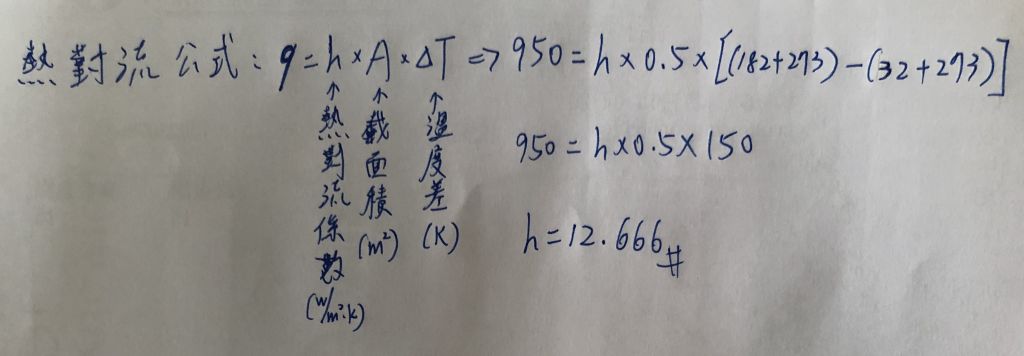 熱對流公式：q=h×A×ΔT => 950=h×0.5×[(182+273)-(32+273)]
↑ ↑ ↑
熱對流係數 (W/m²·K)
截面積 (m²)
溫度差 (K)
950=h×0.5×150
h=12.666#